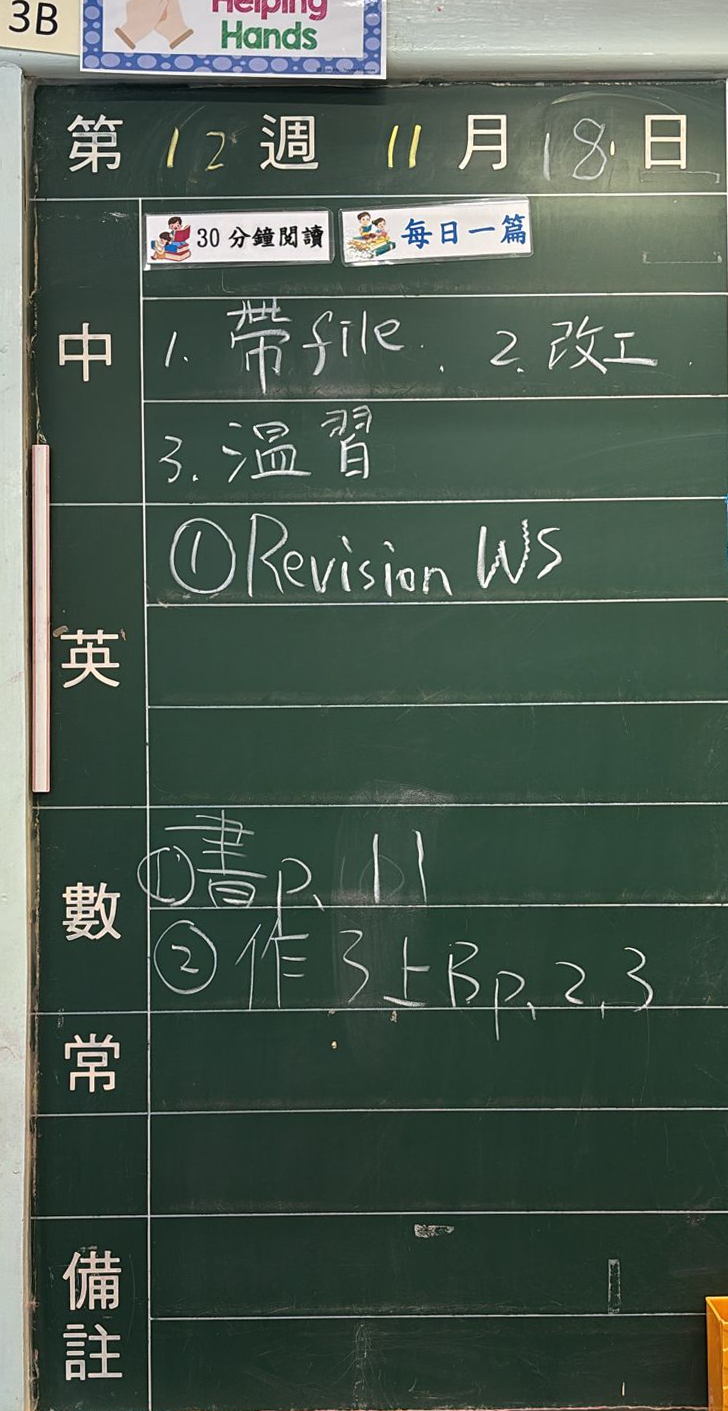 3B
Helping
Hands
第 12 週 11 月 18 日
30 分鐘閱讀 每日一篇
中
1. 帶 file. 2. 改工.
3. 溫習
英
① Revision WS
數
① 書 p. 11
② 作 3上B p. 2, 3
常
備註